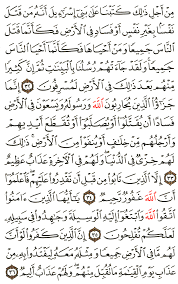 مِنْ أَجْلِ ذَٰلِكَ كَتَبْنَا عَلَىٰ بَنِي إِسْرَائِيلَ أَنَّهُ مَن قَتَلَ
نَفْسًا بِغَيْرِ نَفْسٍ أَوْ فَسَادٍ فِي الْأَرْضِ فَكَأَنَّمَا قَتَلَ
النَّاسَ جَمِيعًا وَمَنْ أَحْيَاهَا فَكَأَنَّمَا أَحْيَا النَّاسَ
جَمِيعًا وَلَقَدْ جَاءَتْهُمْ رُسُلُنَا بِالْبَيِّنَاتِ ثُمَّ إِنَّ كَثِيرًا
مِّنْهُم بَعْدَ ذَٰلِكَ فِي الْأَرْضِ لَمُسْرِفُونَ ٣٢ إِنَّمَا
جَزَاءُ الَّذِينَ يُحَارِبُونَ اللَّهَ وَرَسُولَهُ وَيَسْعَوْنَ فِي الْأَرْضِ
فَسَادًا أَن يُقَتَّلُوا أَوْ يُصَلَّبُوا أَوْ تُقَطَّعَ أَيْدِيهِمْ
وَأَرْجُلُهُم مِّنْ خِلَافٍ أَوْ يُنفَوْا مِنَ الْأَرْضِ ذَٰلِكَ
لَهُمْ خِزْيٌ فِي الدُّنْيَا وَلَهُمْ فِي الْآخِرَةِ عَذَابٌ عَظِيمٌ
٣٣ إِلَّا الَّذِينَ تَابُوا مِن قَبْلِ أَن تَقْدِرُوا عَلَيْهِمْ فَاعْلَمُوا
أَنَّ اللَّهَ غَفُورٌ رَّحِيمٌ ٣٤ يَا أَيُّهَا الَّذِينَ آمَنُوا
اتَّقُوا اللَّهَ وَابْتَغُوا إِلَيْهِ الْوَسِيلَةَ وَجَاهِدُوا فِي سَبِيلِهِ
لَعَلَّكُمْ تُفْلِحُونَ ٣٥ إِنَّ الَّذِينَ كَفَرُوا لَوْ أَنَّ
لَهُم مَّا فِي الْأَرْضِ جَمِيعًا وَمِثْلَهُ مَعَهُ لِيَفْتَدُوا بِهِ مِنْ
عَذَابِ يَوْمِ الْقِيَامَةِ مَا تُقُبِّلَ مِنْهُمْ وَلَهُمْ عَذَابٌ أَلِيمٌ ٣٦